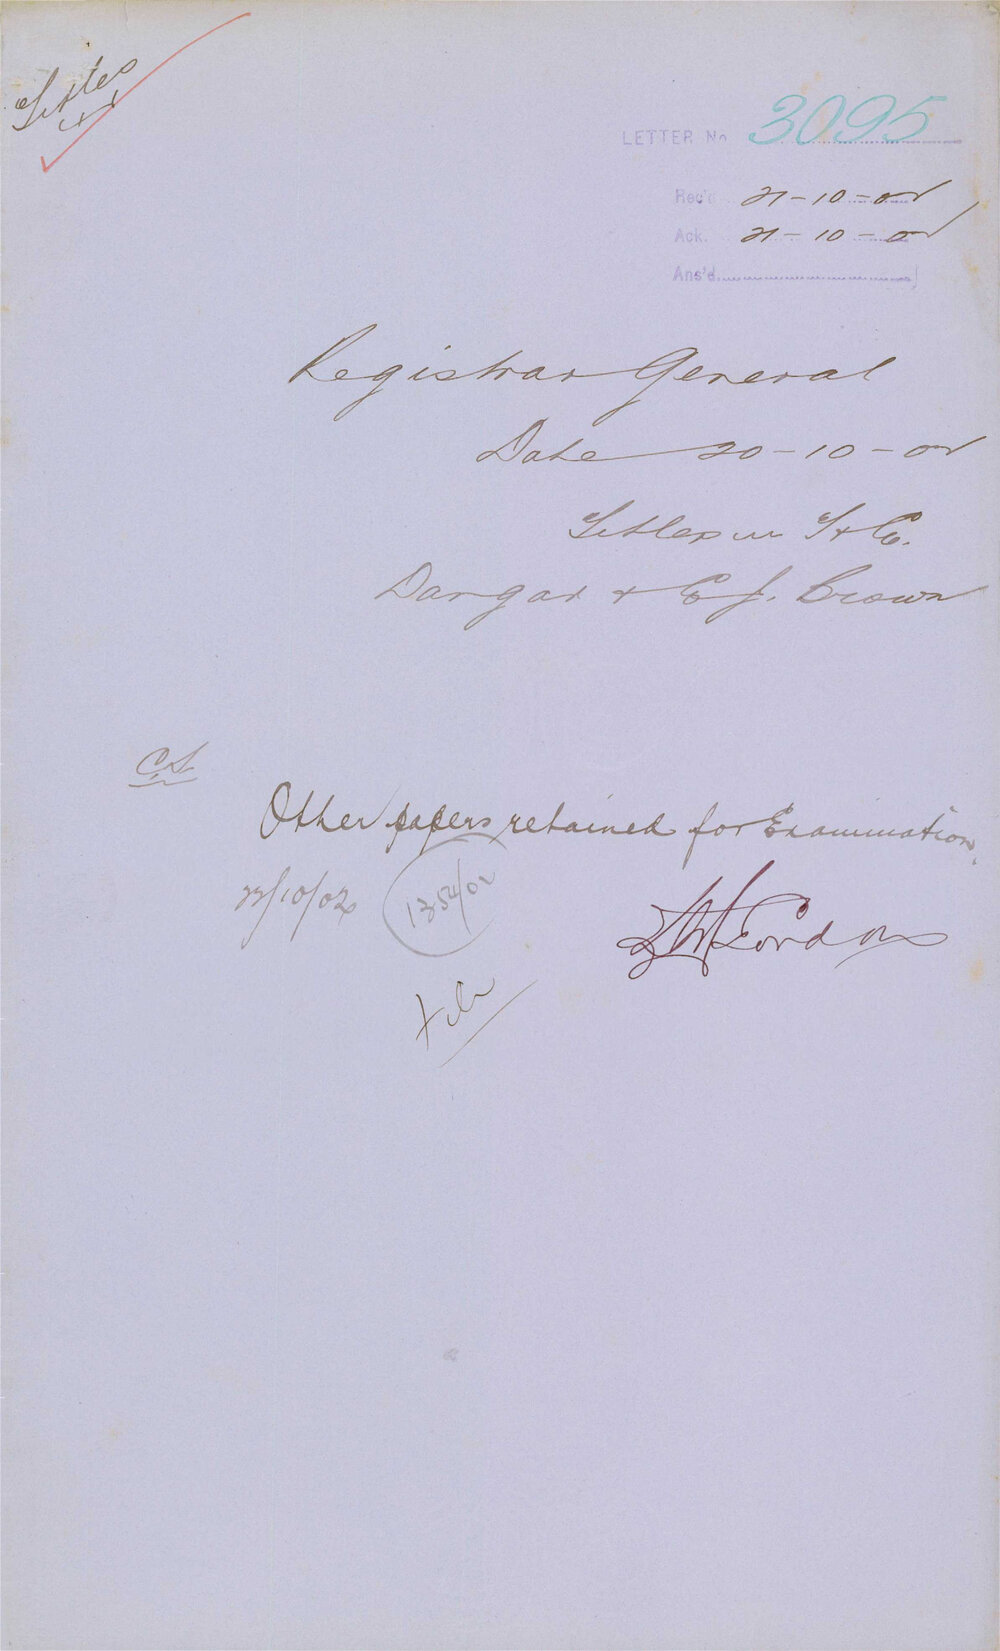 Titles
LETTER No 3095
Rec'd 21-10-02
Ack. 21-10-02
Ans'd
Registrar General
Date 20-10-02
Titles in
Dangar & C J. Brown
C.S.
Other papers retained for Examination.
22/10/02 1354/02
Gordon
File